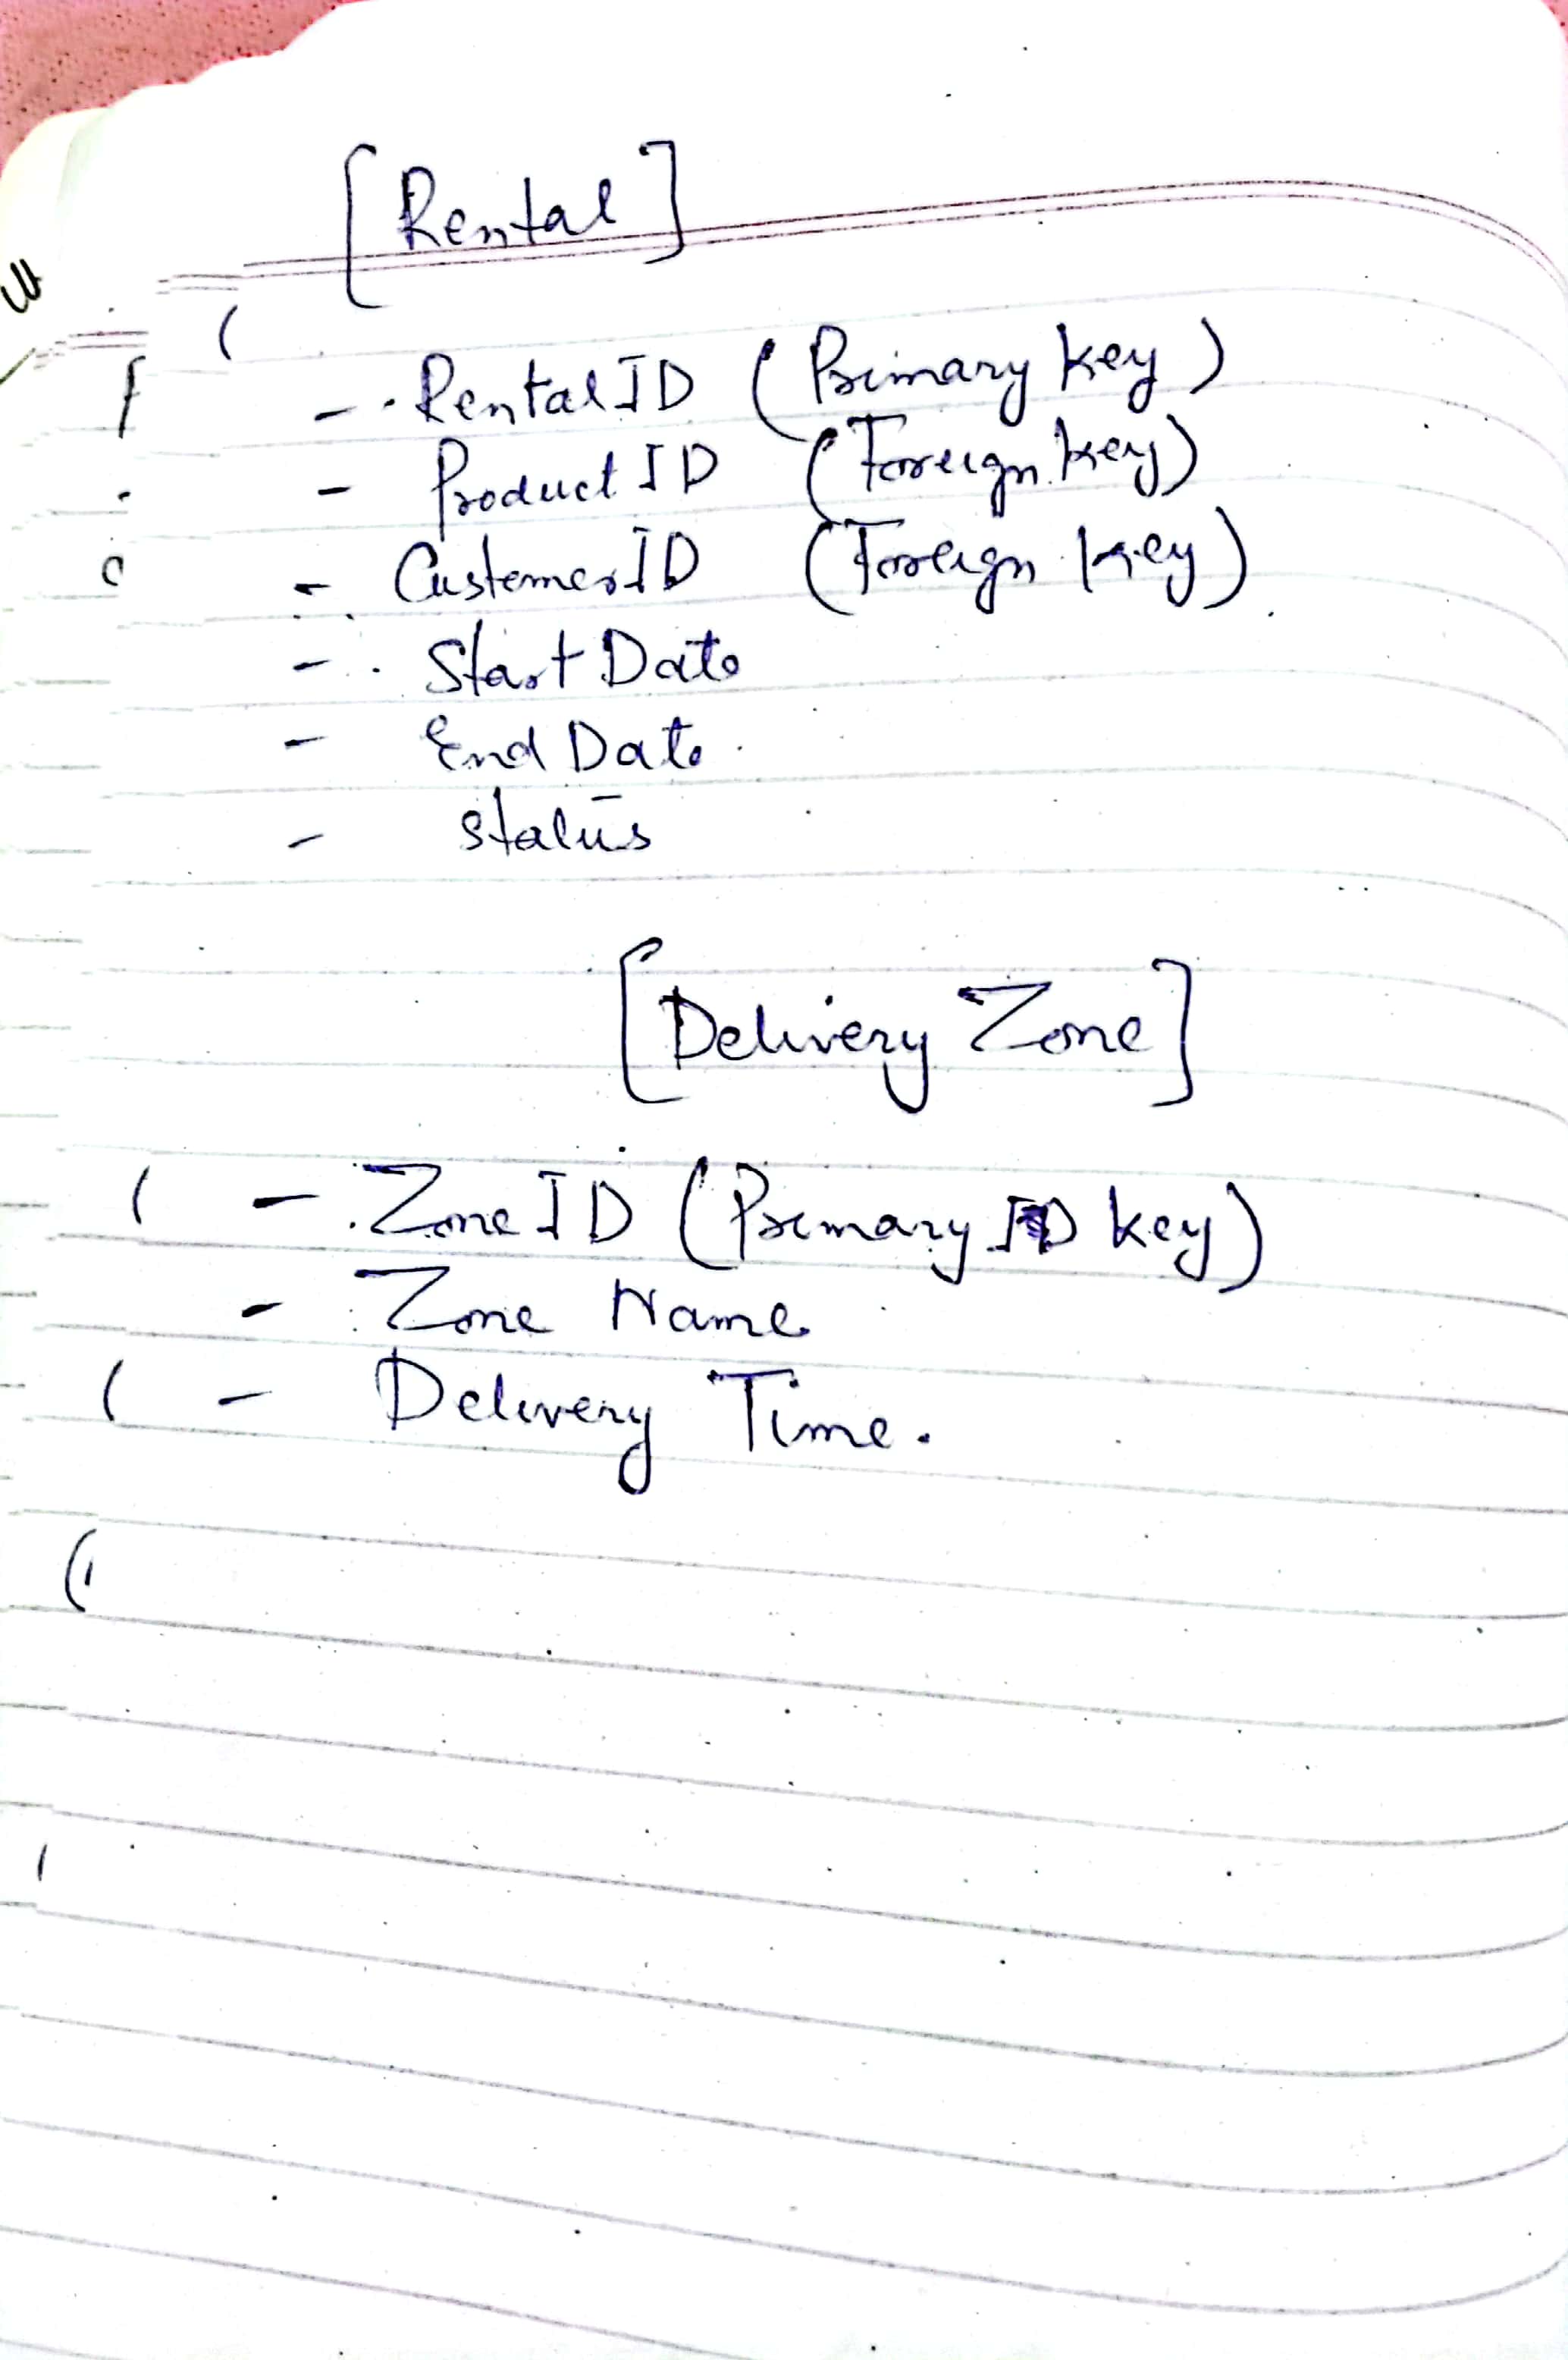 [Rental]
- RentalID (Primary Key)
- Product ID (Foreign Key)
- CustemerID (Foreign Key)
- Start Date
- End Date
- Status
[Delivery Zone]
- Zone ID (Primary ID Key)
- Zone Name
- Delivery Time.